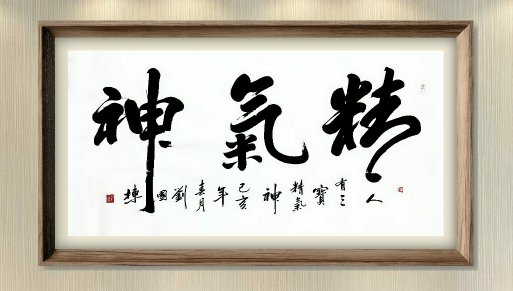 精氣神
人有三寶精氣神
己亥年春月劉国棟